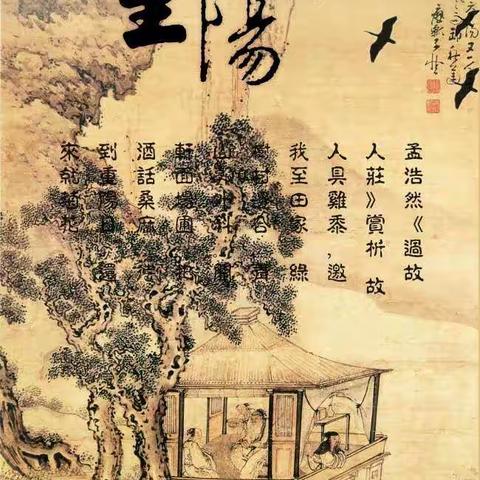 重陽
孟浩然《過故
人莊》賞析 故
人具雞黍,邀
我至田家 綠
村邊合 青
山郭外斜 開
軒面場圃 把
酒話桑麻 待
到重陽日 還
來就菊花